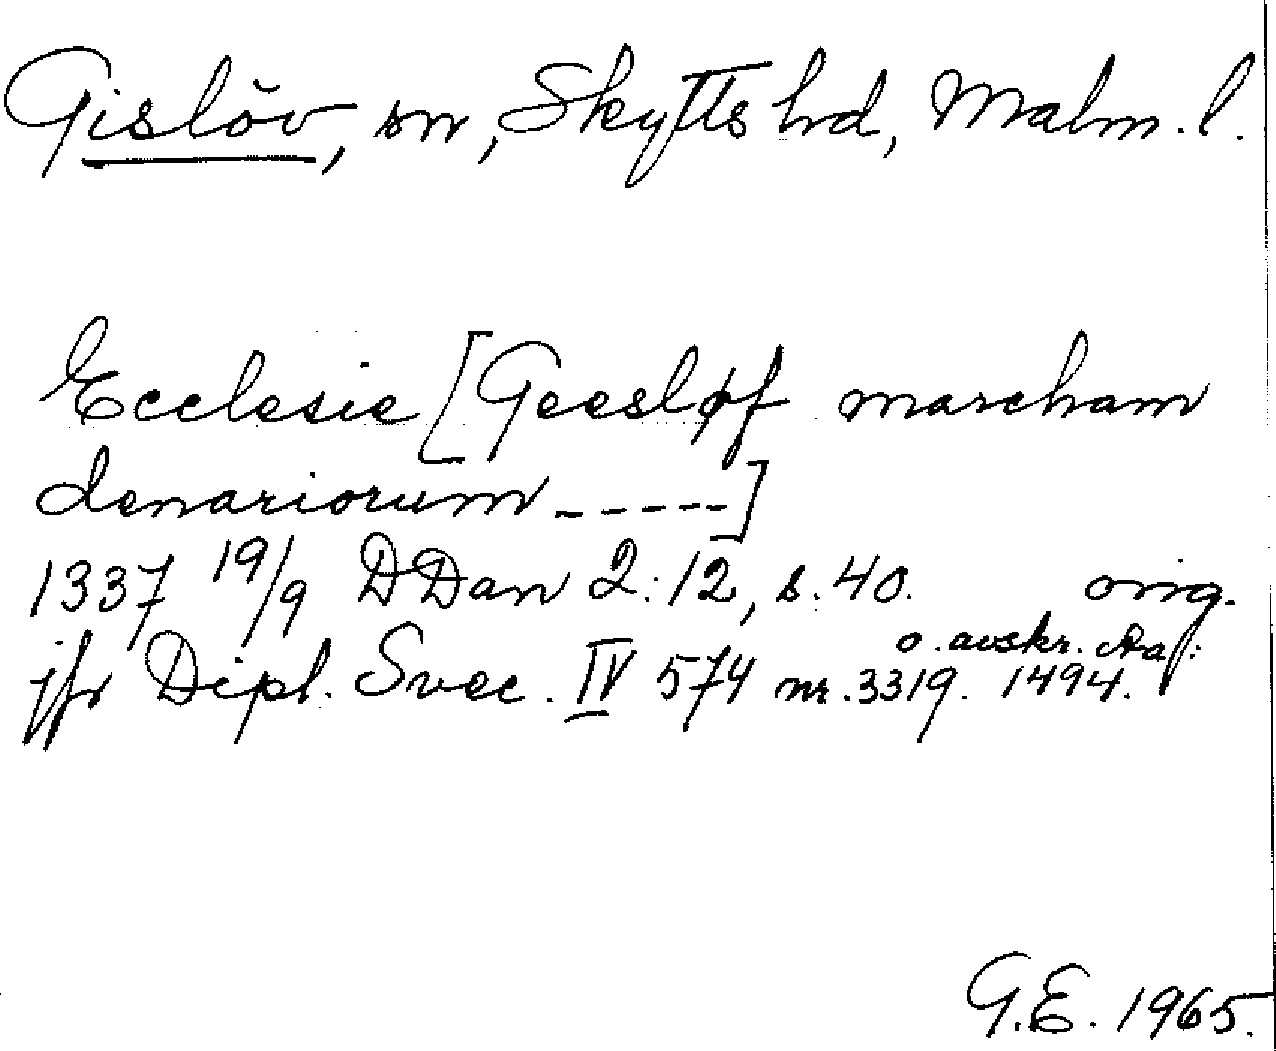 Gislöv, sn, Skytts hd, Malm. l.
Ecclesie [Geesløf marcham
denariorum -----]
1337 19/9 DDan 2:12, s. 40. orig.
o. avskr. daf:
jfr Dipl. Svec. IV 574 nr. 3319. 1494.
G.E. 1965.